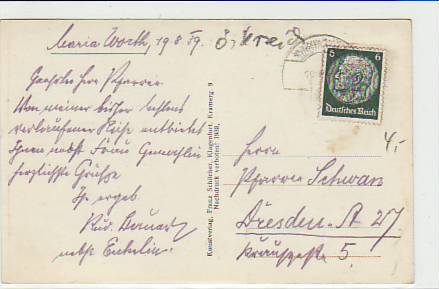 Maria Wörth, 19.8.39. Österreich
Geehrter Herr Pfarrer
Von meiner bisher bestens
verlaufenen Reise entbietet
Ihnen nebst Frau Gemahlin
herzlichste Grüße
Ihr ergeb.
Rud. Bauer
nebst Enkelin.
Kunstverlag Franz Schilcher, Klagenfurt, Kramerg. 9
Nachdruck verboten! 1938.
6 6
Deutsches Reich
4.-
Herrn
Pfarrer Schwan
Dresden-A 27
5.